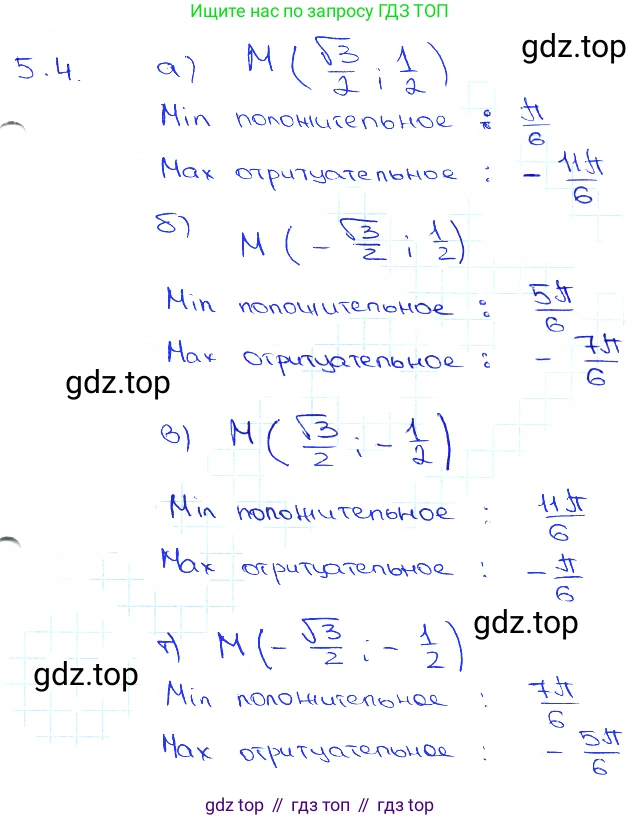 Ищите нас по запросу ГДЗ ТОП
gdz.top
5.4. а) M (√3/2 ; 1/2)
Min положительное : π/6
Max отрицательное : - 11π/6
б) M (- √3/2 ; 1/2)
Min положительное : 5π/6
Max отрицательное : - 7π/6
gdz.top
в) M (√3/2 ; - 1/2)
Min положительное : 11π/6
Max отрицательное : - π/6
gdz.top
г) M (- √3/2 ; - 1/2)
gdz.top
Min положительное : 7π/6
Max отрицательное : - 5π/6
gdz.top // гдз топ // гдз.топ